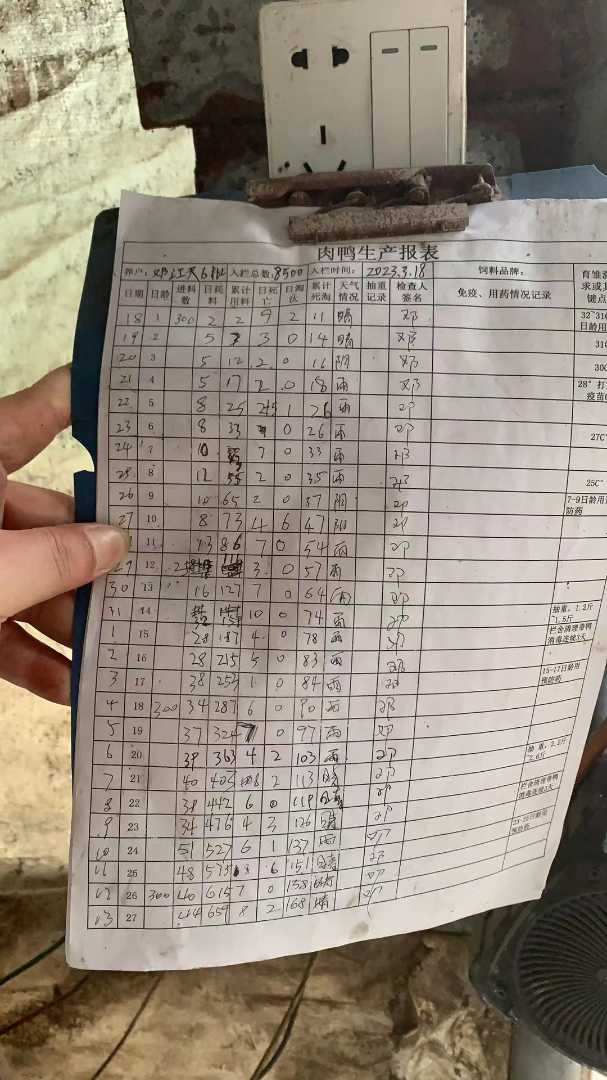 肉鸭生产报表
养户: 入栏总数: 8500 入栏时间: 2023.3.18 饲料品牌:
日期 日龄 进料数 日耗料 累计用料 日死亡 日淘汰 累计死淘 天气情况 抽重记录 检查人签名 免疫、用药情况记录
18 1 300 2 2 9 2 11 晴 邓
19 2 5 3 0 14 晴 邓
20 3 5 12 2 0 16 阴 邓
21 4 5 17 2 0 18 雨 邓
22 5 8 25 1 26 雨 邓
23 6 8 33 0 26 雨 邓
24 7 10 7 0 33 雨 邓
25 8 12 55 2 0 35 雨 邓
26 9 10 65 2 0 37 阴 邓
27 10 8 73 4 6 47 阴 邓
11 13 86 7 0 54 雨 邓
29 12 3 0 57 雨 邓
30 13 16 127 7 0 64 邓
31 14 10 0 74 雨 邓
1 15 28 187 4 0 78 雨 邓
2 16 28 215 5 0 83 雨 邓
3 17 38 253 1 0 84 雨 邓
4 18 300 34 287 6 0 90 邓
5 19 37 324 7 0 97 雨 邓
6 20 39 363 4 2 103 雨 邓
7 21 40 403 8 2 113 邓
8 22 39 442 6 0 119 邓
9 23 34 476 4 3 126 邓
10 24 51 527 6 1 邓
11 25 48 575 8 6 151 邓
12 26 300 40 615 7 0 158 邓
13 27 44 659 8 2 168 晴 邓
32~31
日龄用
28° 打
疫苗
27C°
25C°
7-9日龄用
防药
抽重,1.2斤
栏舍清理带鸭
消毒连续3天
15-17日龄用
预防药
抽重,2.2斤
栏舍清理带鸭
消毒连续3天
预防药